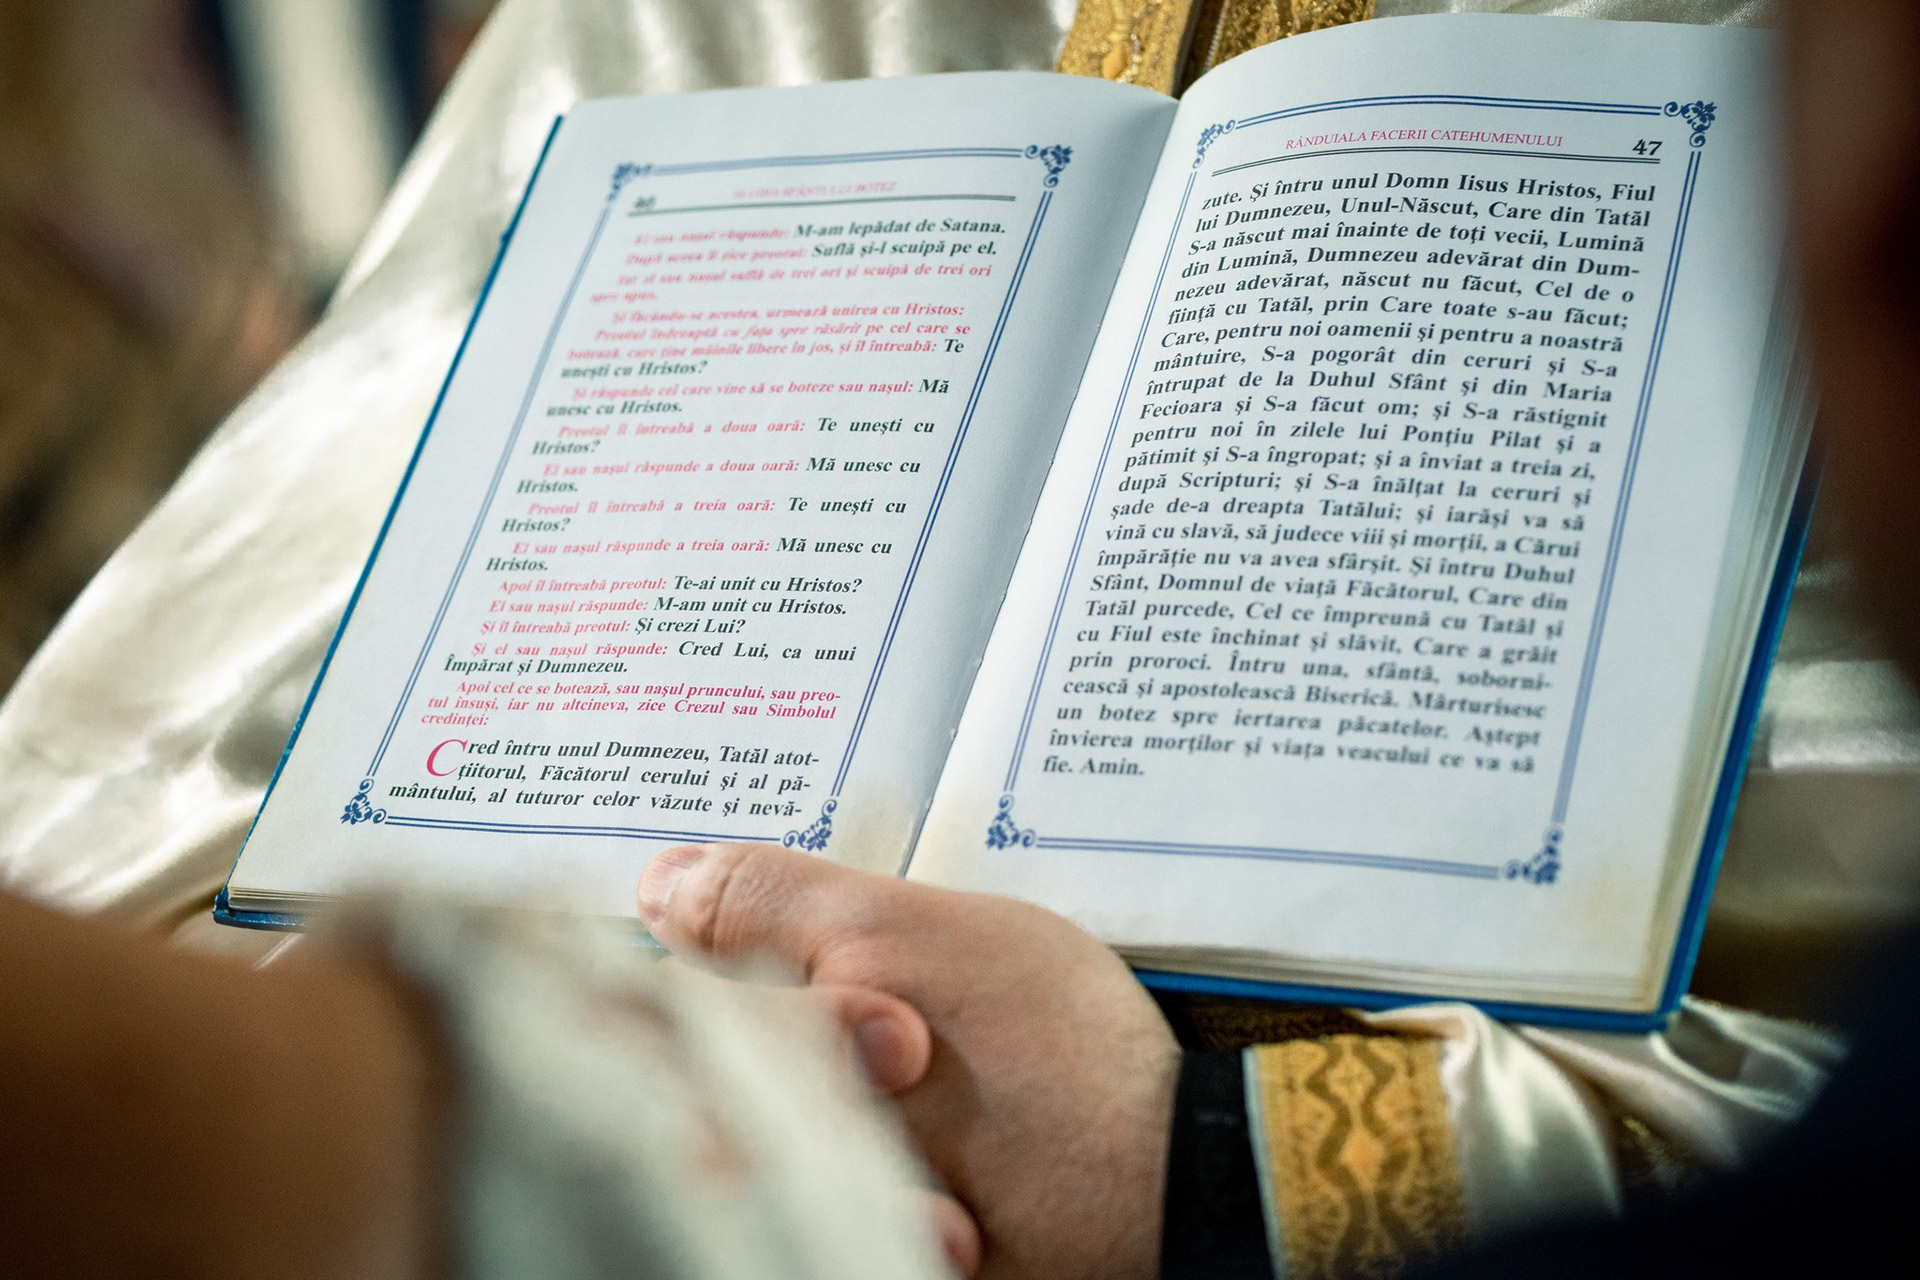 46
SLUJBA SFÂNTULUI BOTEZ
El sau nașul răspunde: M-am lepădat de Satana.
După aceea îi zice preotul: Suflă și-l scuipă pe el.
Iar el sau nașul suflă de trei ori și scuipă de trei ori
spre apus.
Și făcându-se acestea, urmează unirea cu Hristos:
Preotul îndreaptă cu fața spre răsărit pe cel care se
botează, care ține mâinile libere în jos, și îl întreabă: Te
unești cu Hristos?
Și răspunde cel care vine să se boteze sau nașul: Mă
unesc cu Hristos.
Preotul îl întreabă a doua oară: Te unești cu
Hristos?
El sau nașul răspunde a doua oară: Mă unesc cu
Hristos.
Preotul îl întreabă a treia oară: Te unești cu
Hristos?
El sau nașul răspunde a treia oară: Mă unesc cu
Hristos.
Apoi îl întreabă preotul: Te-ai unit cu Hristos?
El sau nașul răspunde: M-am unit cu Hristos.
Și îl întreabă preotul: Și crezi Lui?
Și el sau nașul răspunde: Cred Lui, ca unui
Împărat și Dumnezeu.
Apoi cel ce se botează, sau nașul pruncului, sau preo-
tul însuși, iar nu altcineva, zice Crezul sau Simbolul
credinței:
Cred întru unul Dumnezeu, Tatăl atot-
țiitorul, Făcătorul cerului și al pă-
mântului, al tuturor celor văzute și nevă-
RÂNDUIALA FACERII CATEHUMENULUI 47
zute. Și întru unul Domn Iisus Hristos, Fiul
lui Dumnezeu, Unul-Născut, Care din Tatăl
S-a născut mai înainte de toți vecii, Lumină
din Lumină, Dumnezeu adevărat din Dum-
nezeu adevărat, născut nu făcut, Cel de o
ființă cu Tatăl, prin Care toate s-au făcut;
Care, pentru noi oamenii și pentru a noastră
mântuire, S-a pogorât din ceruri și S-a
întrupat de la Duhul Sfânt și din Maria
Fecioara și S-a făcut om; și S-a răstignit
pentru noi în zilele lui Ponțiu Pilat și a
pătimit și S-a îngropat; și a înviat a treia zi,
după Scripturi; și S-a înălțat la ceruri și
șade de-a dreapta Tatălui; și iarăși va să
vină cu slavă, să judece viii și morții, a Cărui
împărăție nu va avea sfârșit. Și întru Duhul
Sfânt, Domnul de viață Făcătorul, Care din
Tatăl purcede, Cel ce împreună cu Tatăl și
cu Fiul este închinat și slăvit, Care a grăit
prin proroci. Întru una, sfântă, soborni-
cească și apostolească Biserică. Mărturisesc
un botez spre iertarea păcatelor. Aștept
învierea morților și viața veacului ce va să
fie. Amin.